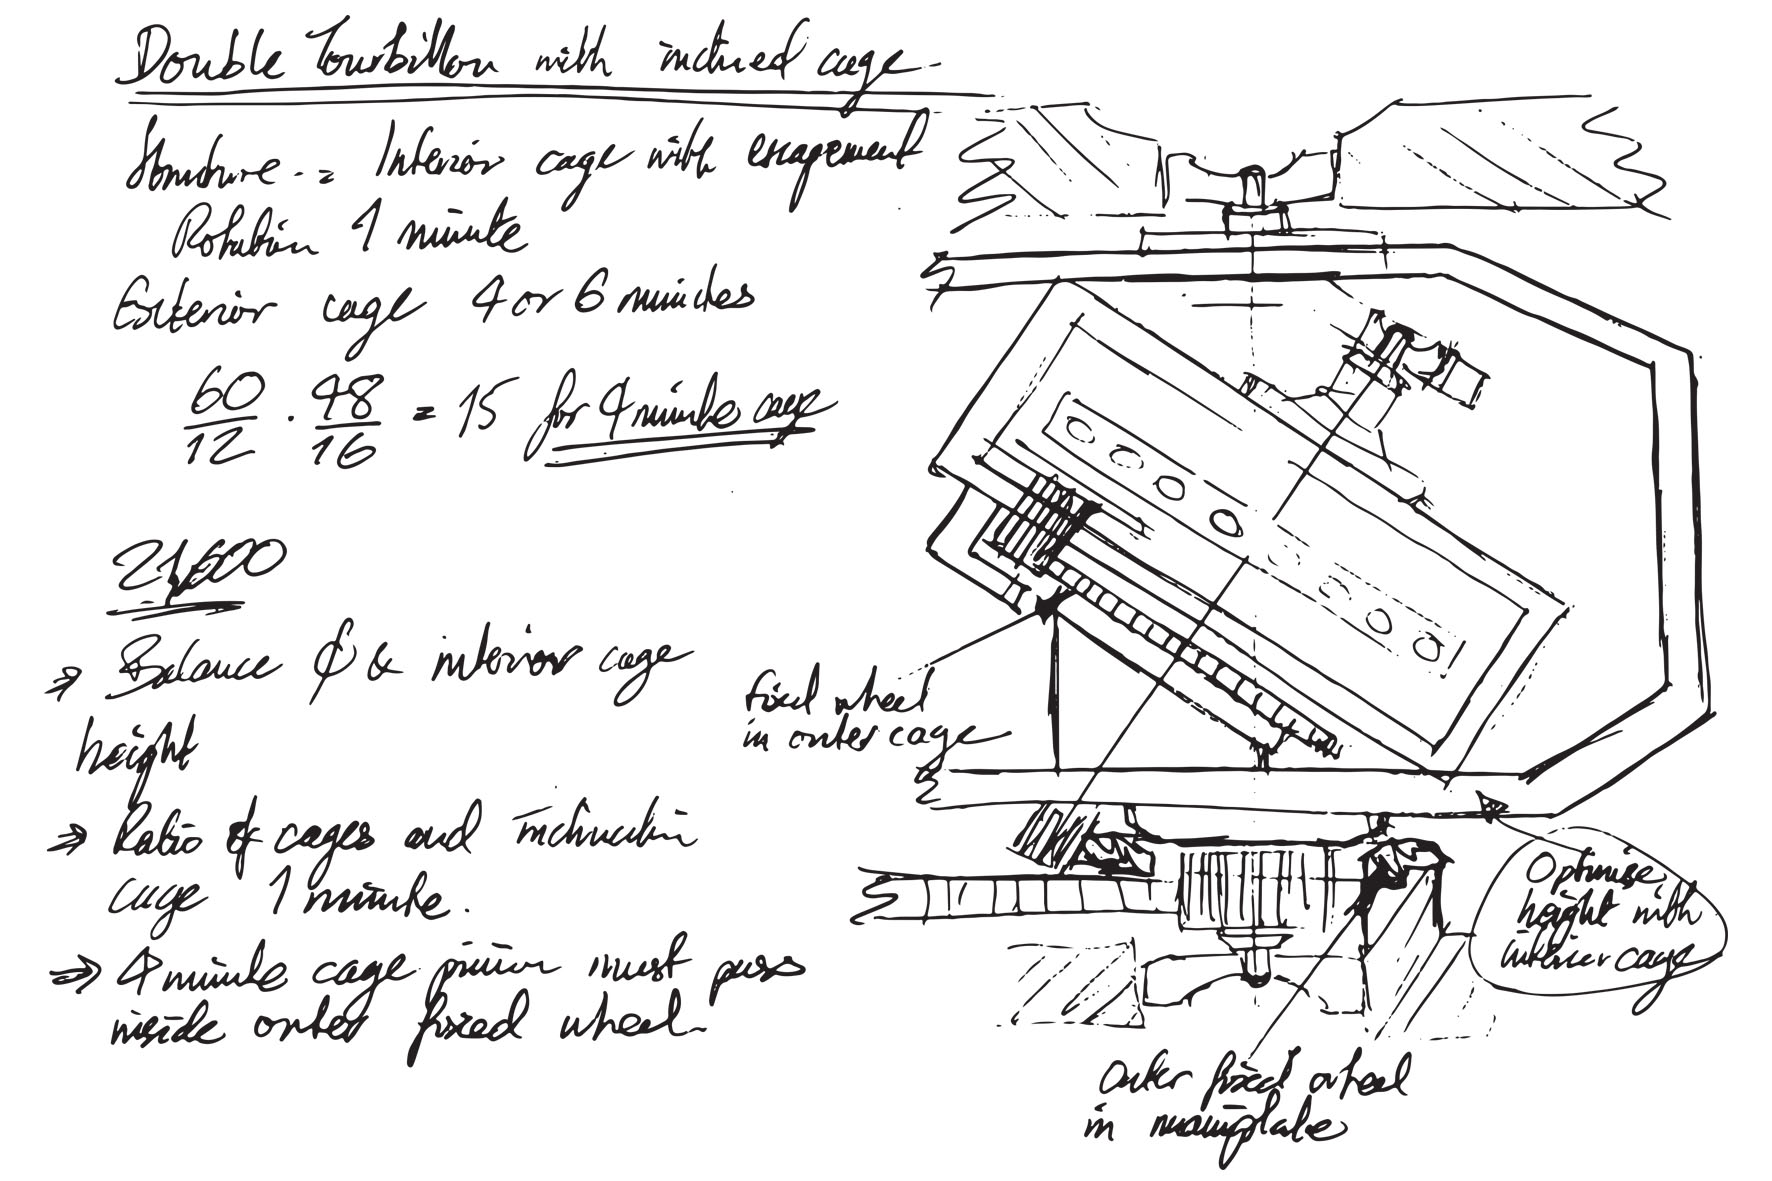 Double Tourbillon with inclined cage
Structure :- Interior cage with escapement
Rotation 1 minute
Exterior cage 4 or 6 minutes
60/12 . 48/16 = 15 for 4 minute cage
21,600
⇒ Balance ¢ & interior cage
height
⇒ Ratio of cages and inclination
cage 1 minute.
⇒ 4 minute cage pinion must pass
inside outer fixed wheel.
fixed wheel
in outer cage
Optimise
height with
interior cage
Outer fixed wheel
in mainplate